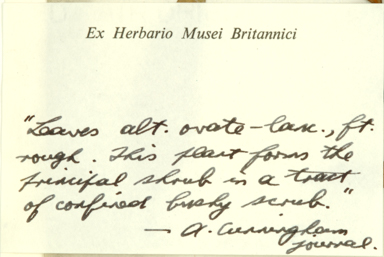 Ex Herbario Musei Britannici
"Leaves alt. ovate-lanc., ft.
rough. This plant forms the
principal shrub in a tract
of confined bushy scrub."
— A. Cunningham
journal.